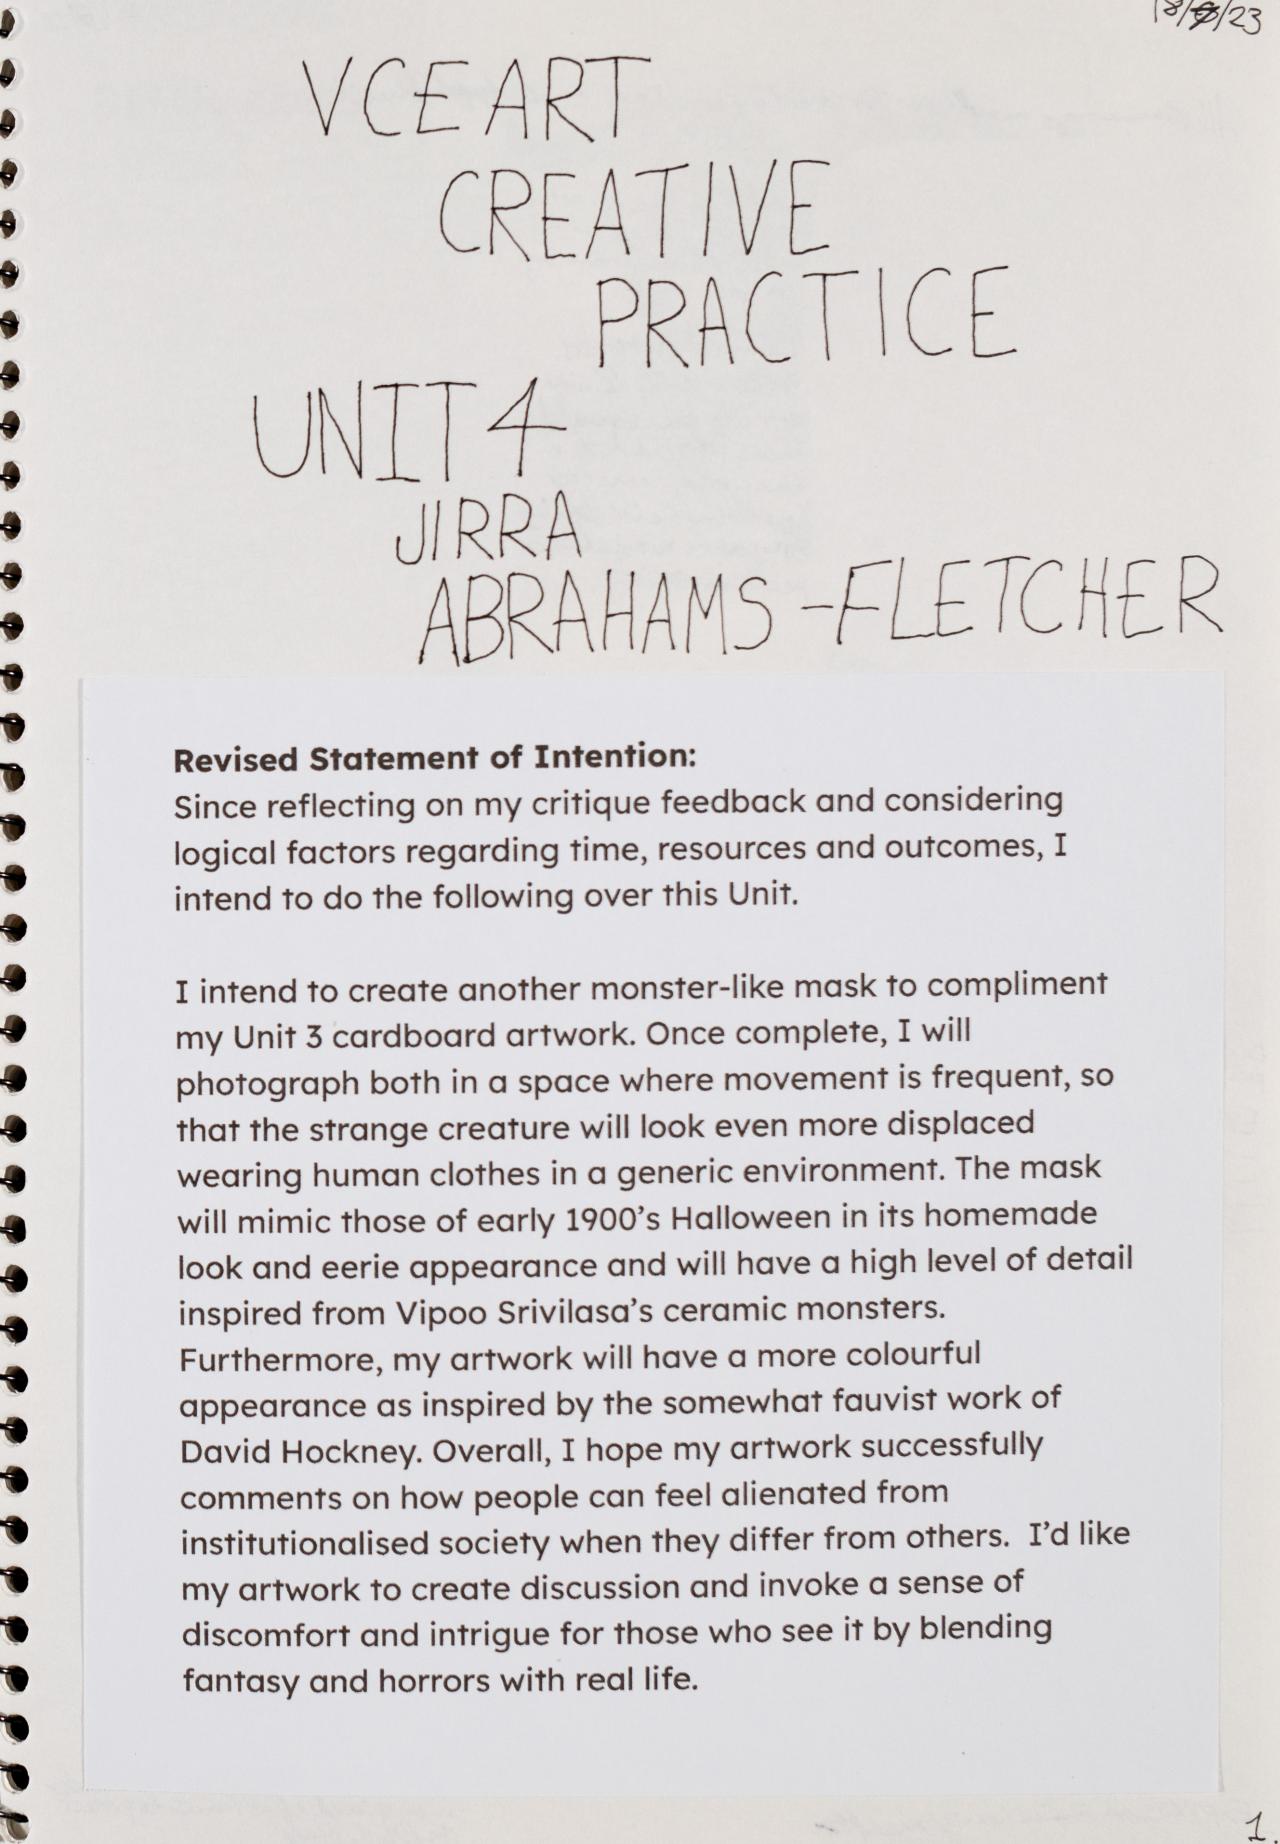 18/ /23
VCE ART
CREATIVE
PRACTICE
UNIT 4
JIRRA
ABRAHAMS-FLETCHER
Revised Statement of Intention:
Since reflecting on my critique feedback and considering
logical factors regarding time, resources and outcomes, I
intend to do the following over this Unit.
I intend to create another monster-like mask to compliment
my Unit 3 cardboard artwork. Once complete, I will
photograph both in a space where movement is frequent, so
that the strange creature will look even more displaced
wearing human clothes in a generic environment. The mask
will mimic those of early 1900's Halloween in its homemade
look and eerie appearance and will have a high level of detail
inspired from Vipoo Srivilasa's ceramic monsters.
Furthermore, my artwork will have a more colourful
appearance as inspired by the somewhat fauvist work of
David Hockney. Overall, I hope my artwork successfully
comments on how people can feel alienated from
institutionalised society when they differ from others. I'd like
my artwork to create discussion and invoke a sense of
discomfort and intrigue for those who see it by blending
fantasy and horrors with real life.
1.